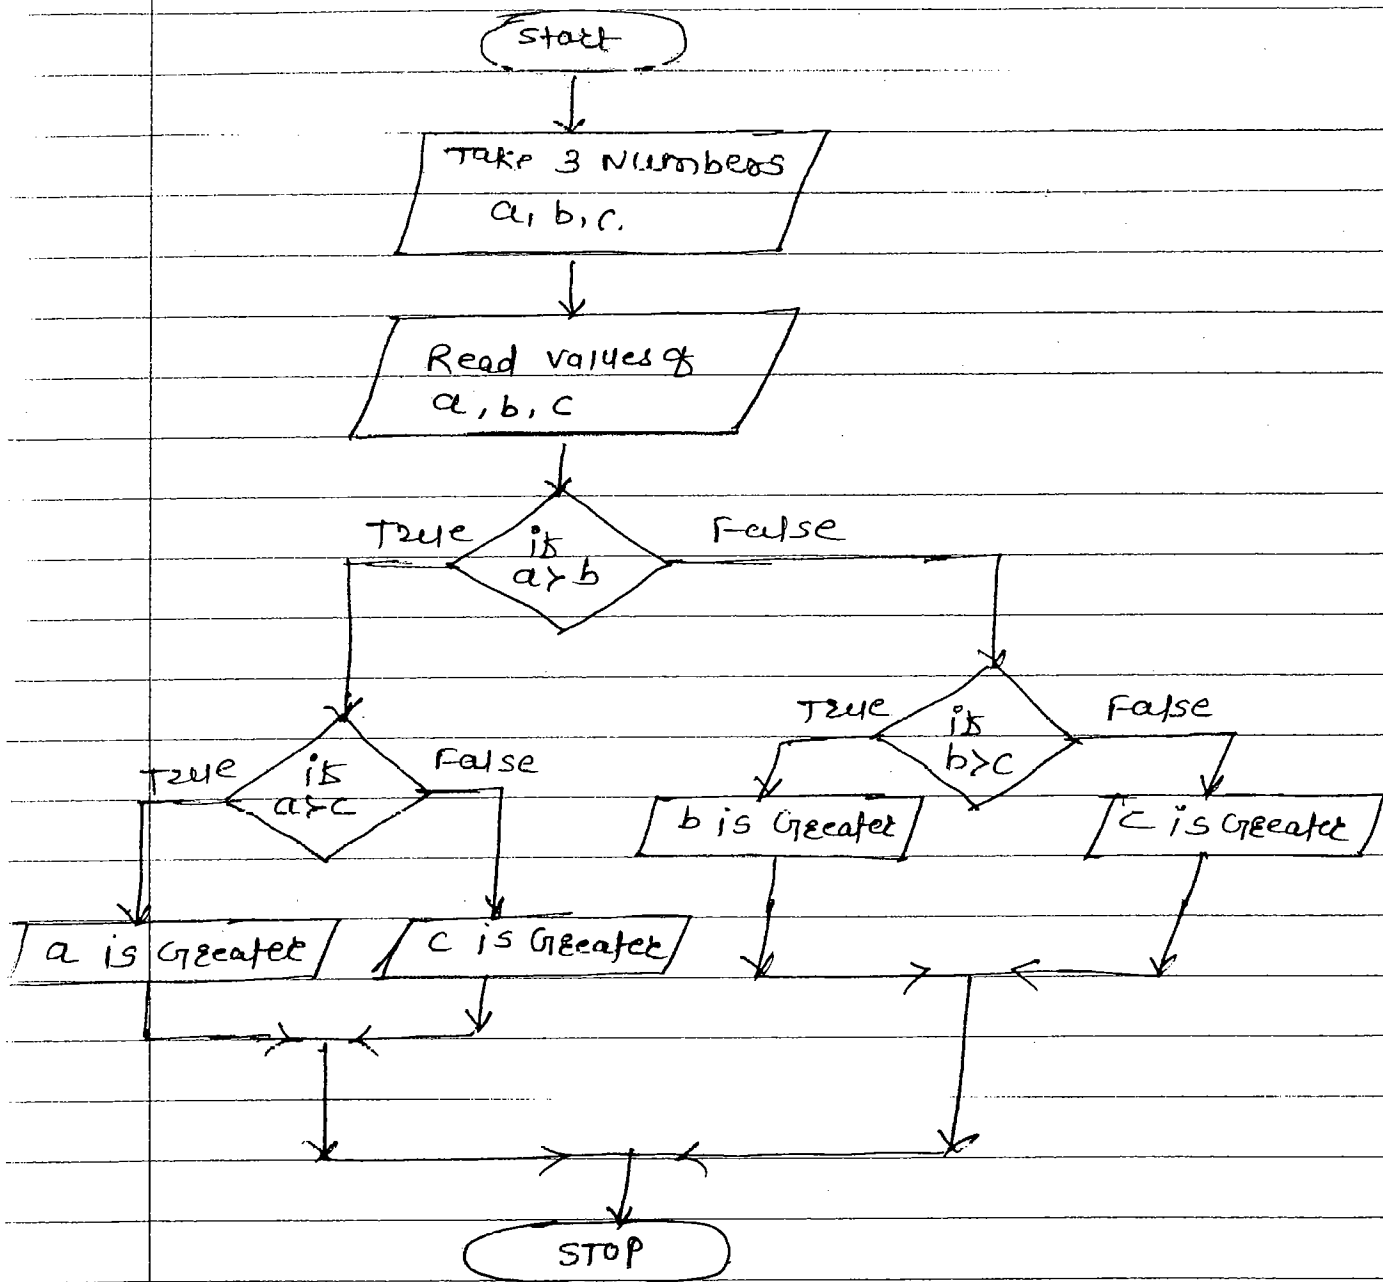 Start
Take 3 Numbers
a, b, c.
Read values of
a, b, c
True
if
a > b
False
True
if
b>c
False
True
if
a>c
False
b is Greater
c is Greater
a is Greater
c is Greater
STOP